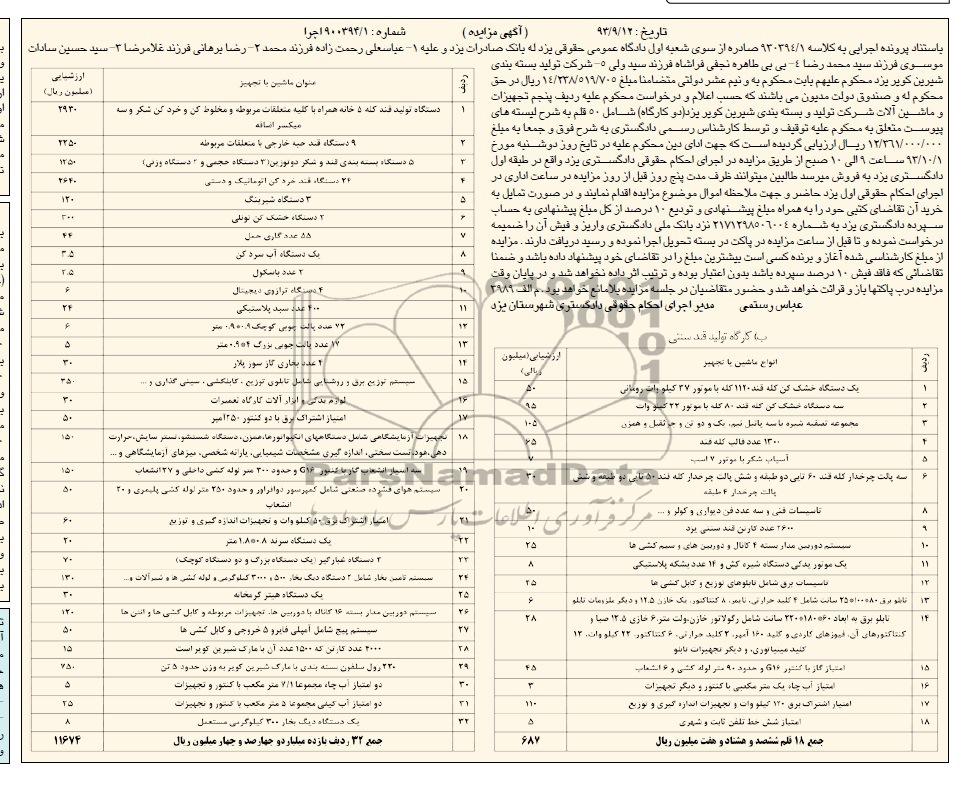 تاریخ : ۹۳/۹/۱۲ ( آگهی مزایده ) شماره : ۹۰۰۳۹۴/۱ اجرا
باستناد پرونده اجرایی به کلاسه ۹۳۰۳۹۴/۱ صادره از سوی شعبه اول دادگاه عمومی حقوقی یزد له بانک صادرات یزد و علیه ۱- عباسعلی رحمت زاده فرزند محمد ۲- رضا برهانی فرزند غلامرضا ۳- سید حسین سادات
موسوی فرزند سید محمد رضا ۴- بی بی طاهره نجفی فراشاه فرزند سید ولی ۵- شرکت تولید بسته بندی
شیرین کویر یزد محکوم علیهم بابت محکوم به و نیم عشر دولتی متضامنا مبلغ ۱۴/۲۳۸/۵۱۹/۷۰۵ ریال در حق
محکوم له و صندوق دولت مدیون می باشند که حسب اعلام و درخواست محکوم علیه ردیف پنجم تجهیزات
و ماشین آلات شرکت تولید و بسته بندی شیرین کویر یزد(دو کارگاه) شامل ۵۰ قلم به شرح لیسته های
پیوست متعلق به محکوم علیه توقیف و توسط کارشناس رسمی دادگستری به شرح فوق و جمعا به مبلغ
۱۲/۳۶۱/۰۰۰/۰۰۰ ریال ارزیابی گردیده است که جهت ادای دین محکوم علیه در تایخ روز دوشنبه مورخ
۹۳/۱۰/۱ ساعت ۹ الی ۱۰ صبح از طریق مزایده در اجرای احکام حقوقی دادگستری یزد واقع در طبقه اول
دادگستری یزد به فروش میرسد طالبین میتوانند ظرف مدت پنج روز قبل از روز مزایده در ساعت اداری در
اجرای احکام حقوقی اول یزد حاضر و جهت ملاحظه اموال موضوع مزایده اقدام نمایند و در صورت تمایل به
خرید آن تقاضای کتبی خود را به همراه مبلغ پیشنهادی و تودیع ۱۰ درصد از کل مبلغ پیشنهادی به حساب
سپرده دادگستری یزد به شماره ۲۱۷۱۲۹۸۵۰۶۰۰۴ نزد بانک ملی دادگستری واریز و فیش آن را ضمیمه
درخواست نموده و تا قبل از ساعت مزایده در پاکت در بسته تحویل اجرا نموده و رسید دریافت دارند . مزایده
از مبلغ کارشناسی شده آغاز و برنده کسی است بیشترین مبلغ را در تقاضای خود پیشنهاد داده باشد و ضمنا
تقاضائی که فاقد فیش ۱۰ درصد سپرده باشد بدون اعتبار بوده و ترتیب اثر داده نخواهد شد و در پایان وقت
مزایده درب پاکتها باز و قرائت خواهد شد و حضور متقاضیان در جلسه مزایده بلامانع خواهد بود. م الف ۳۹۸۹
عباس رستمی مدیر اجرای احکام حقوقی دادگستری شهرستان یزد
ب) کارگاه تولید قند سنتی
ردیف انواع ماشین یا تجهیز ارزشیابی(میلیون ریالی)
۱ یک دستگاه خشک کن کله قند ۱۱۲۰ کله با موتور ۳۷ کیلو وات رومانی ۵۰
۲ سه دستگاه خشک کن کله قند ۸۰ کله با موتور ۲۲ کیلو وات ۹۵
۳ مجموعه تصفیه شیره با سه پاتیل نیم، یک و دو تن و جرثقیل و همزن ۱۰۵
۴ ۱۳۰۰ عدد قالب کله قند ۶۵
۵ آسیاب شکر با موتور ۷ اسب ۷
۶ سه پالت چرخدار کله قند ۶۰ تایی دو طبقه و شش پالت چرخدار کله قند ۵۰ تایی دو طبقه و شش ۳۰
پالت چرخدار ۴ طبقه
۸ تاسیسات فنی و سه عدد فن دیواری و کولر و ... ۵۰
۹ ۲۶۰۰ عدد کارتن قند سنتی یزد ۱۰
۱۰ سیستم دوربین مدار بسته ۴ کانال و دوربین های و سیم کشی ها ۲۵
۱۱ یک موتور یدکی دستگاه شیره کش و ۱۴ عدد بشکه پلاستیکی ۸
۱۲ تاسیسات برق شامل تابلوهای توزیع و کابل کشی ها ۲۵
۱۳ تابلو برق ۸۰*۱۰۰*۲۵ سانت شامل ۴ کلید حرارتی، تایمر، ۸ کنتاکتور، یک خازن ۱۲.۵ و دیگر ملزومات تابلو ۶
۱۴ تابلو برق به ابعاد ۶۰*۱۸۰*۲۲۰ سانت شامل رگولاتور خازن،ولت متر،۶ خازی ۱۲.۵ صبا و ۲۸
کنتاکتورهای آن، فیوزهای کاردی و کلید ۱۶۰ آمپر، ۲ کلید حرارتی، ۶ کنتاکتور، ۲۲ کیلو وات، ۱۲
کلید مینیاتوری، و دیگر تجهیزات تابلو
۱۵ امتیاز گاز با کنتور G۱۶ و حدود ۹۰ متر لوله کشی و ۶ انشعاب ۴۵
۱۶ امتیاز آب چاه یک متر مکعبی با کنتور و دیگر تجهیزات ۳
۱۷ امتیاز اشتراک برق ۱۲۰ کیلو وات و تجهیزات اندازه گیری و توزیع ۱۱۰
۱۸ امتیاز شش خط تلفن ثابت و شهری ۵
جمع ۱۸ قلم ششصد و هشتاد و هفت میلیون ریال ۶۸۷
ردیف عنوان ماشین یا تجهیز ارزشیابی (میلیون ریال)
۱ دستگاه تولید قند کله ۵ خانه همراه با کلیه متعلقات مربوطه و مخلوط کن و خرد کن شکر و سه ۲۹۳۰
میکسر اضافه
۲ ۹ دستگاه قند حبه خارجی با متعلقات مربوطه ۲۲۵۰
۳ ۵ دستگاه بسته بندی قند و شکر دوتوزین(۳ دستگاه حجمی و ۲ دستگاه وزنی) ۱۲۵۰
۴ ۲۴ دستگاه قند خرد کن اتوماتیک و دستی ۲۶۴۰
۵ ۳ دستگاه شیرینگ ۱۲۰
۶ ۲ دستگاه خشک کن تونلی ۲۰۰
۷ ۵۵ عدد گاری حمل ۴۴
۸ یک دستگاه آب سرد کن ۳.۵
۹ ۲ عدد باسکول ۲.۵
۱۰ ۴ دستگاه ترازوی دیجیتال ۶
۱۱ ۴۰۰ عدد سبد پلاستیکی ۲۴
۱۲ ۷۲ عدد پالت چوبی کوچک ۰.۹*۰.۹ متر ۶
۱۳ ۱۷ عدد پالت چوبی بزرگ ۴*۰.۹ متر ۵
۱۴ ۴ عدد بخاری گاز سوز پلار ۳۰
۱۵ سیستم توزیع برق و روشنایی شامل تابلوی توزیع ، کابلکشی ، سینی گذاری و ... ۳۵۰
۱۶ لوازم یدکی و ابزار آلات کارگاه تعمیرات ۳۰
۱۷ امتیاز اشتراک برق با دو کنتور ۲۵۰آمپر ۵۰
۱۸ تجهیزات آزمایشگاهی شامل دستگاههای انکیوباتورها،همزن، دستگاه شستشو،تستر سایش،حرارت ۱۵۰
دهی،هود،تست سختی، اندازه گیری مشخصات شیمیایی، یارانه شخصی، میزهای آزمایشگاهی و ...
۱۹ سه امتیاز انشعاب گاز با کنتور G۱۶ و حدود ۳۰۰ متر لوله کشی داخلی و ۲۷ انشعاب ۱۵۰
۲۰ سیستم هوای فشرده صنعتی شامل کمپرسور دوافراور و حدود ۲۵۰ متر لوله کشی پلیمری و ۲۰ ۵۰
انشعاب
۲۱ امتیاز اشتراک برق ۵۰ کیلو وات و تجهیزات اندازه گیری و توزیع ۶۰
۲۲ یک دستگاه سرند ۰.۸*۱.۸ متر ۲۰
۲۳ ۳ دستگاه غبارگیر (یک دستگاه بزرگ و دو دستگاه کوچک) ۷۰
۲۴ سیستم تامین بخار شامل ۲ دستگاه دیگ بخار ۵۰۰ و ۳۰۰۰ کیلوگرمی و لوله کشی ها و شیرآلات و... ۱۳۰
۲۵ یک دستگاه هیتر گرمخانه ۲۰
۲۶ سیستم دوربین مدار بسته ۱۶ کاناله با دوربین ها، تجهیزات مربوطه و کابل کشی ها و آنتن ها ۱۲۰
۲۷ سیستم پیج شامل آمپلی فایرو ۵ خروجی و کابل کشی ها ۵۰
۲۸ ۴۰۰۰ عدد کارتن که ۱۵۰۰ عدد آن با مارک شیرین کویر است ۱۵
۲۹ ۲۲۰ رول سلفون بسته بندی با مارک شیرین کویر به وزن حدود ۵ تن ۷۵۰
۳۰ دو امتیاز آب چاه مجموعا ۷/۱ متر مکعب با کنتور و تجهیزات ۵
۳۱ دو امتیاز آب کیفی مجموعا ۵ متر مکعب با کنتور و تجهیزات ۲۵
۳۲ یک دستگاه دیگ بخار ۳۰۰ کیلوگرمی مستعمل ۸
جمع ۳۲ ردیف یازده میلیارد و چهارصد و چهار میلیون ریال ۱۱۶۷۴
ParsNamadData
مرکز فرآوری اطلاعات پارس نماد داده ها